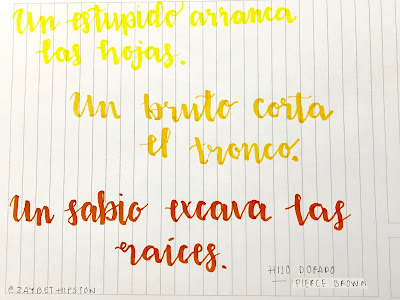 Un estupido arranca
las hojas.
Un bruto corta
el tronco.
Un sabio excava las
raíces.
HIJO DORADO
— PIERCE BROWN
@ZAYBETHIPSTON